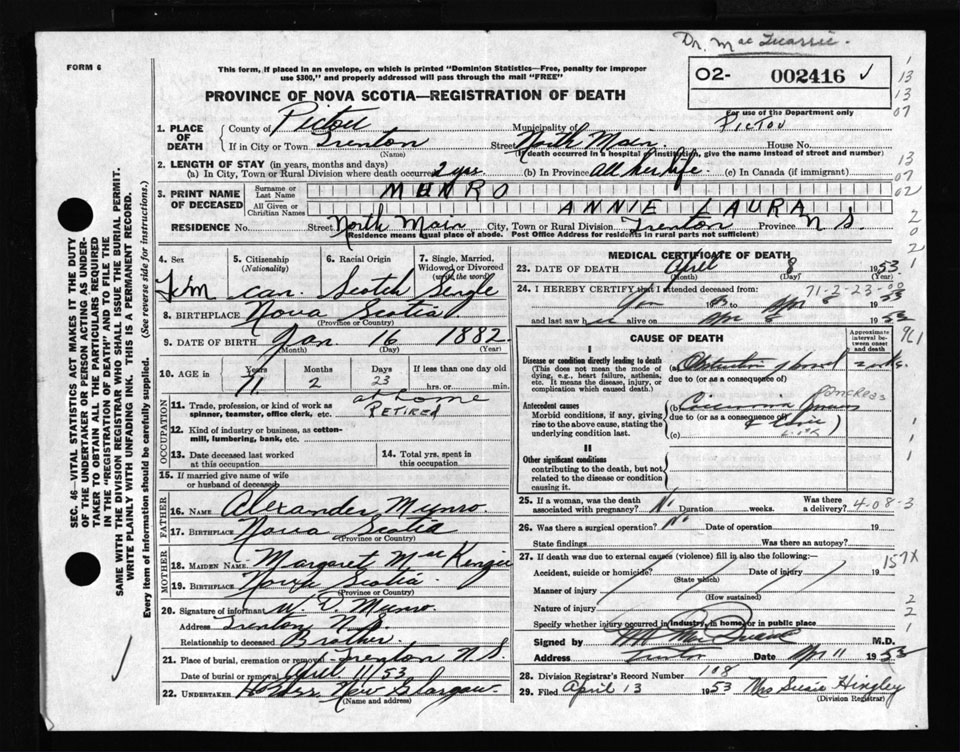 Dr. MacQuarrie.
FORM 6
This form, if placed in an envelope, on which is printed "Dominion Statistics—Free, penalty for improper
use $300," and properly addressed will pass through the mail "FREE"
O2- 002416 ✓
For use of the Department only
PROVINCE OF NOVA SCOTIA—REGISTRATION OF DEATH
PICTOU
1. PLACE OF DEATH County of Pictou Municipality of
If in City or Town Trenton Street North Main. House No.
(Name) (If death occurred in a hospital or institution, give the name instead of street and number)
2. LENGTH OF STAY (in years, months and days)
(a) In City, Town or Rural Division where death occurred 2 yrs (b) In Province All her life. (c) In Canada (if immigrant)
3. PRINT NAME OF DECEASED Surname or Last Name MUNRO
All Given or Christian Names ANNIE LAURA
RESIDENCE No. Street North Main City, or Town or Rural Division Trenton Province N S.
(Residence means usual place of abode. Post Office Address for residents in rural parts not sufficient)
4. Sex Fem
5. Citizenship (Nationality) Can.
6. Racial Origin Scotch
7. Single, Married, Widowed or Divorced (write the word) Single
8. BIRTHPLACE Nova Scotia
(Province or Country)
9. DATE OF BIRTH Jan. 16 1882
(Month) (Day) (Year)
10. AGE in Years Months Days If less than one day old
71 2 23 hrs. or min.
OCCUPATION
11. Trade, profession, or kind of work as spinner, teamster, office clerk, etc. at home
RETIRED
12. Kind of industry or business, as cotton-mill, lumbering, bank, etc.
13. Date deceased last worked at this occupation
14. Total yrs. spent in this occupation
15. If married give name of wife or husband of deceased
FATHER
16. NAME Alexander Munro
17. BIRTHPLACE Nova Scotia
(Province or Country)
MOTHER
18. MAIDEN NAME Margaret MacKenzie
19. BIRTHPLACE Nova Scotia
(Province or Country)
20. Signature of informant W. D. Munro.
Address Trenton N.S.
Relationship to deceased Brother.
21. Place of burial, cremation or removal Trenton N.S.
Date of burial or removal April 11/53
22. UNDERTAKER New Glasgow.
(Name and address)
MEDICAL CERTIFICATE OF DEATH
23. DATE OF DEATH April 8 1953
(Month) (Day) (Year)
71-2-23-00
24. I HEREBY CERTIFY that I attended deceased from
Jan Apr 8 1953
and last saw her alive on Apr 8 1953
CAUSE OF DEATH
Approximate interval between onset and death
I
Disease or condition directly leading to death
(This does not mean the mode of dying, e.g., heart failure, asthenia, etc. It means the disease, injury, or complication which caused death.)
(a) Obstruction of bowel
due to (or as a consequence of)
Antecedent causes
Morbid conditions, if any, giving rise to the above cause, stating the underlying condition last.
(b) pancreas
due to (or as a consequence of)
(c)
II
Other significant conditions
contributing to the death, but not related to the disease or condition causing it.
25. If a woman, was the death associated with pregnancy? No Duration weeks. Was there a delivery?
4-08-3
26. Was there a surgical operation? No Date of operation 19
State findings Was there an autopsy?
27. If death was due to external causes (violence) fill in also the following:—
157X
Accident, suicide or homicide? Date of injury 19
(State which)
Manner of injury
(How sustained)
Nature of injury
Specify whether injury occurred in industry, in home, or in public place
Signed by MacQuarrie M.D.
Address Trenton Date Apr 11 1953
28. Division Registrar's Record Number 108
29. Filed April 13 1953 Mrs Susie Hingley
(Division Registrar)
SEC. 46—VITAL STATISTICS ACT MAKES IT THE DUTY
OF THE UNDERTAKER OR PERSON ACTING AS UNDER-
TAKER TO OBTAIN ALL THE PARTICULARS REQUIRED
IN THE "REGISTRATION OF DEATH" AND TO FILE THE
SAME WITH THE DIVISION REGISTRAR WHO SHALL ISSUE THE BURIAL PERMIT.
WRITE PLAINLY WITH UNFADING INK. THIS IS A PERMANENT RECORD.
Every item of information should be carefully supplied. (See reverse side for instructions.)
1
13
13
07
13
07
02
2
0
2
1
961
1
1
1
2
2
1